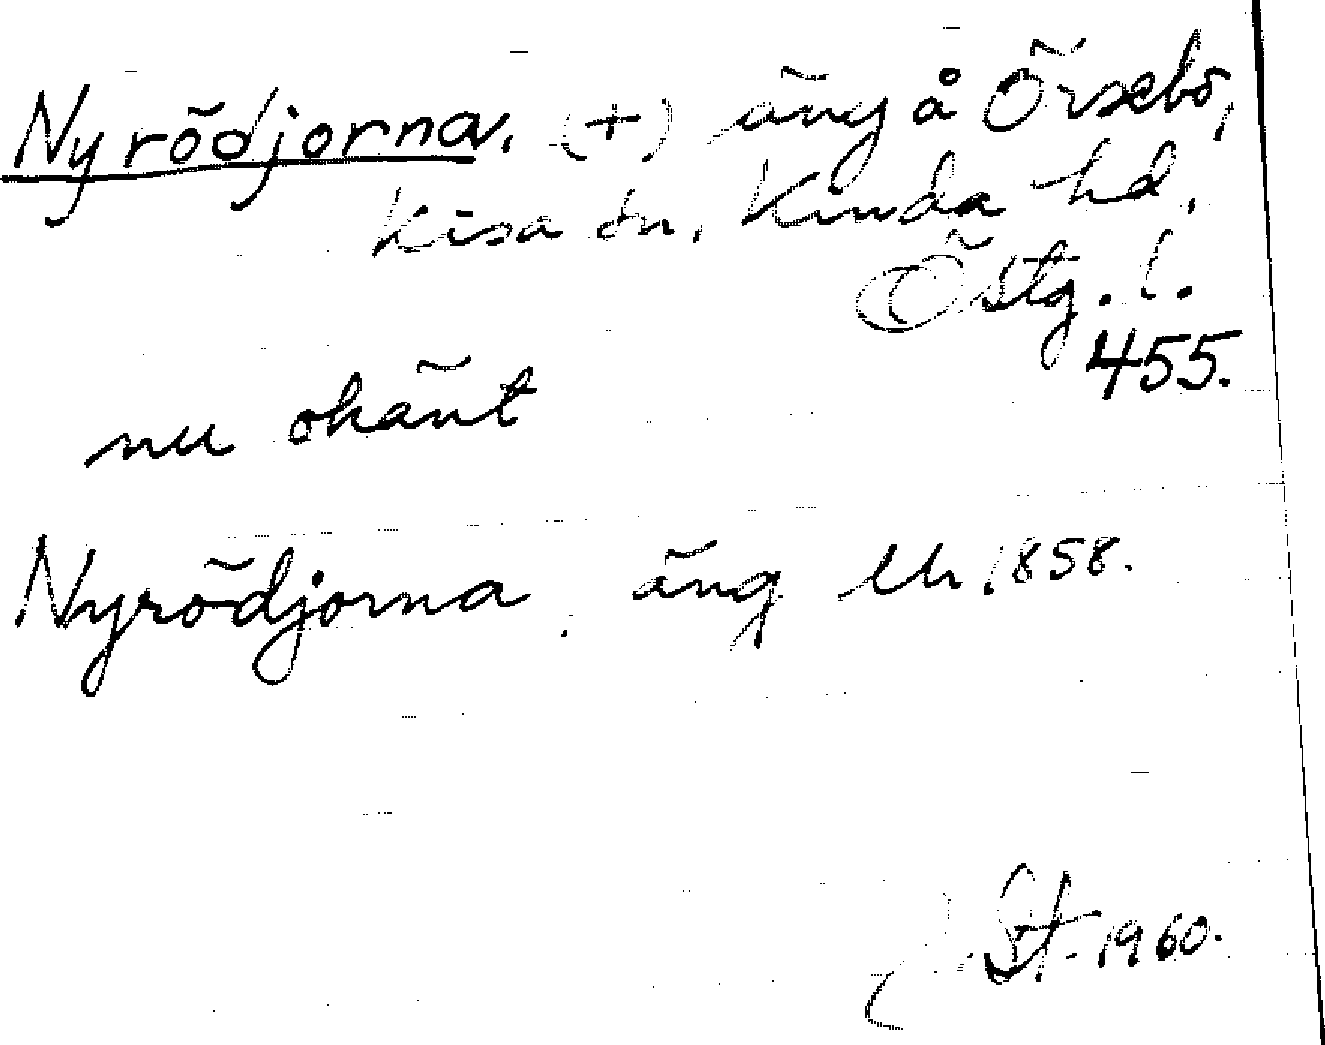 Nyrödjorna. (+) äng å Örsebo,
Kisa sn. Kinda hd,
Östg. l.
455.
nu okänt
Nyrödjorna äng Uh 1858.
St. 1960.